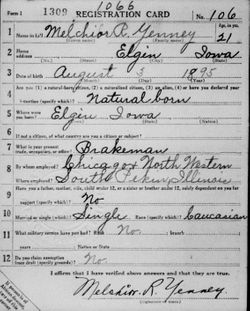 1066
Form 1 1309 REGISTRATION CARD No. 106
1 Name in full Melchior R. Yenney Age, in yrs. 21
2 Home address Elgin Iowa
3 Date of birth August 3 1895
4 Are you (1) a natural-born citizen, (2) a naturalized citizen, (3) an alien, (4) or have you declared your
intention (specify which)? Natural born
5 Where were you born? Elgin Iowa
6 If not a citizen, of what country are you a citizen or subject?
7 What is your present trade, occupation, or office? Brakeman
8 By whom employed? Chicago & North Western
Where employed? South Pekin, Illinois
9 Have you a father, mother, wife, child under 12, or a sister or brother under 12, solely dependent on you for
support (specify which)? No
10 Married or single (which)? Single Race (specify which)? Caucasian
11 What military service have you had? Rank No
years Nation or State
12 Do you claim exemption from draft (specify grounds)? No
I affirm that I have verified above answers and that they are true.
Melchior R. Yenney